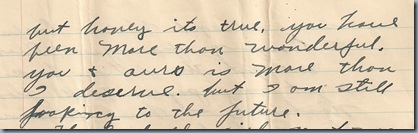 but honey its true, you have
been more than wonderful.
you & ours is more than
I deserve. but I am still
looking to the future.